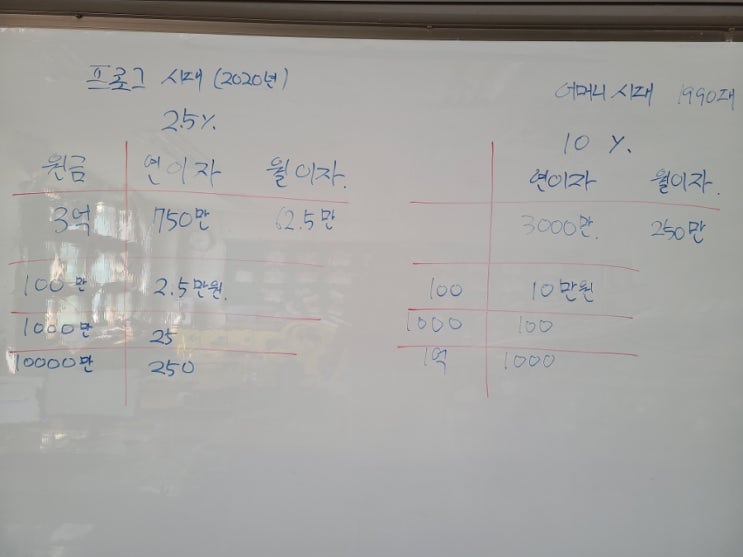 프로그 시대 (2020년)
2.5%.
원금 연이자 월이자.
3억 750만 62.5만
100만 2.5만원.
1000만 25
10000만 250
어머니 시대 1990대
10 %.
연이자 월이자.
3000만. 250만
100 10만원
1000 100
1억 1000